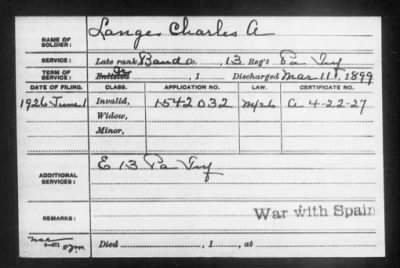 NAME OF SOLDIER: Lange, Charles A
SERVICE: Late rank, Band Co. , 13 Reg't Pa Inf
TERM OF SERVICE: Enlisted , 1 Discharged Mar. 11, 1899
DATE OF FILING. CLASS. APPLICATION NO. LAW. CERTIFICATE NO.
1926 June 1 Invalid, 1542032 C 4-22-27
Widow,
Minor,
ADDITIONAL SERVICES: E 13 Pa Inf
REMARKS: War with Spain
Died , 1 , at